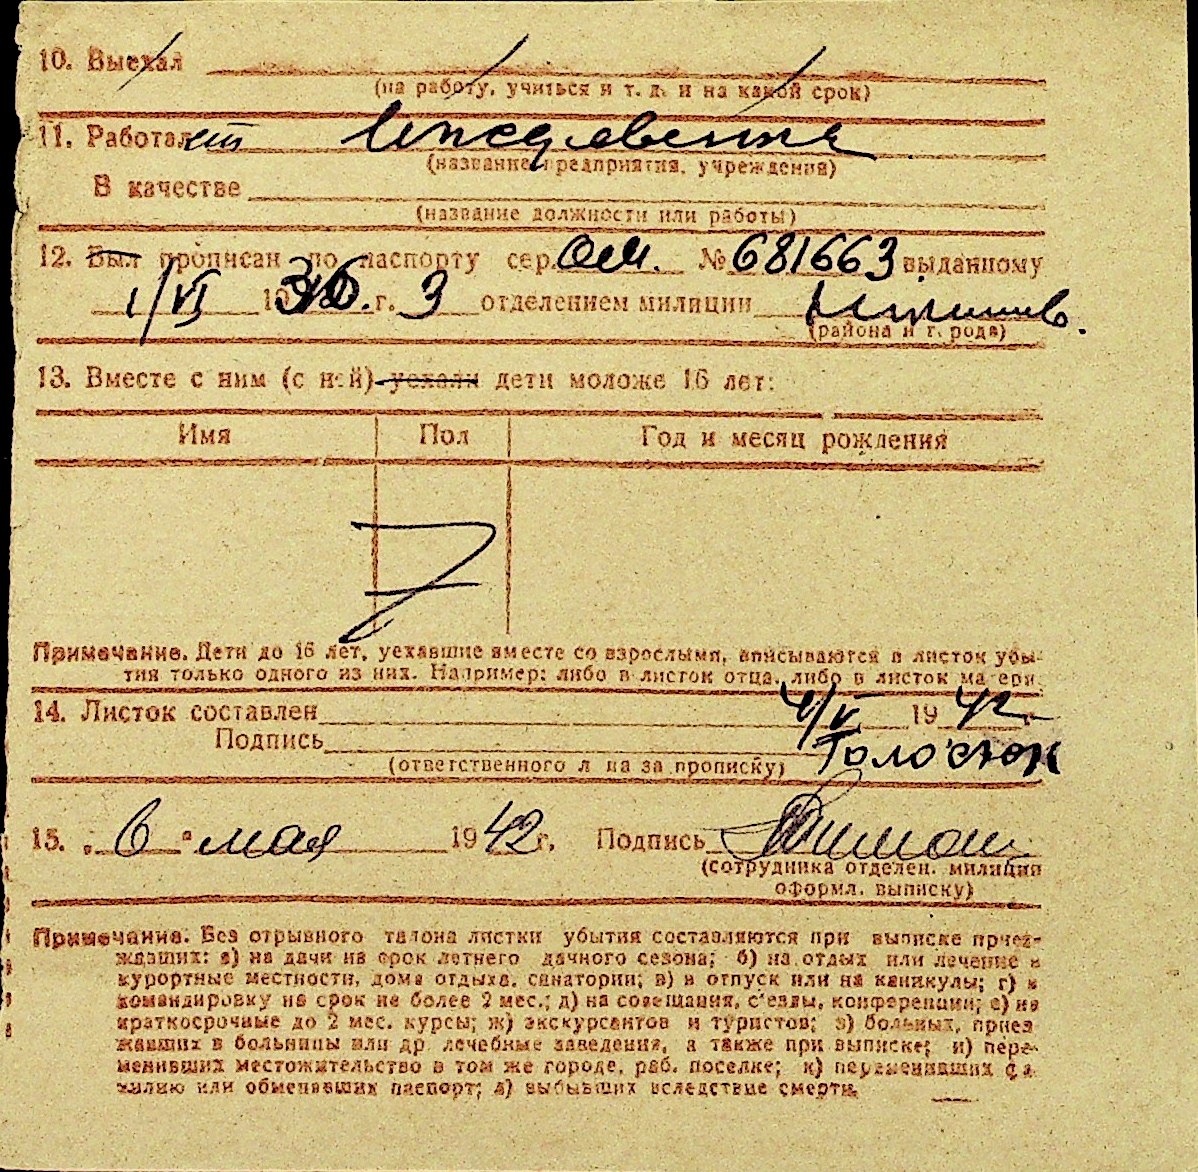 10. Выехал
(на работу, учиться и т. д. и на какой срок)
11. Работает Иждивенка
(название предприятия, учреждения)
В качестве
(название должности или работы)
12. Был прописан по паспорту сер. № 681663 выданному
1/VI 19 г. 3 отделением милиции Кишинев.
(района и города)
13. Вместе с ним (с ней) уехали дети моложе 16 лет:
Имя Пол Год и месяц рождения
Примечание. Дети до 16 лет, уехавшие вместе со взрослыми, вписываются в листок убы-
тия только одного из них. Например: либо в листок отца, либо в листок матери.
14. Листок составлен 4/V 1942 г.
Подпись
(ответственного лица за прописку)
15. „6" мая 1942 г. Подпись
(сотрудника отделен. милиции
оформл. выписку)
Примечание. Без отрывного талона листки убытия составляются при выписке приез-
жавших: а) на дачи на срок летнего дачного сезона; б) на отдых или лечение в
курортные местности, дома отдыха, санатории; в) в отпуск или на каникулы; г) в
командировку на срок не более 2 мес.; д) на совещания, с'езды, конференции; е) на
краткосрочные до 2 мес. курсы; ж) экскурсантов и туристов; з) больных, приез
жавших в больницы или др. лечебные заведения, а также при выписке; и) пере-
менивших местожительство в том же городе, раб. поселке; к) переменивших фа
милию или обменявших паспорт; л) выбывших вследствие смерти.